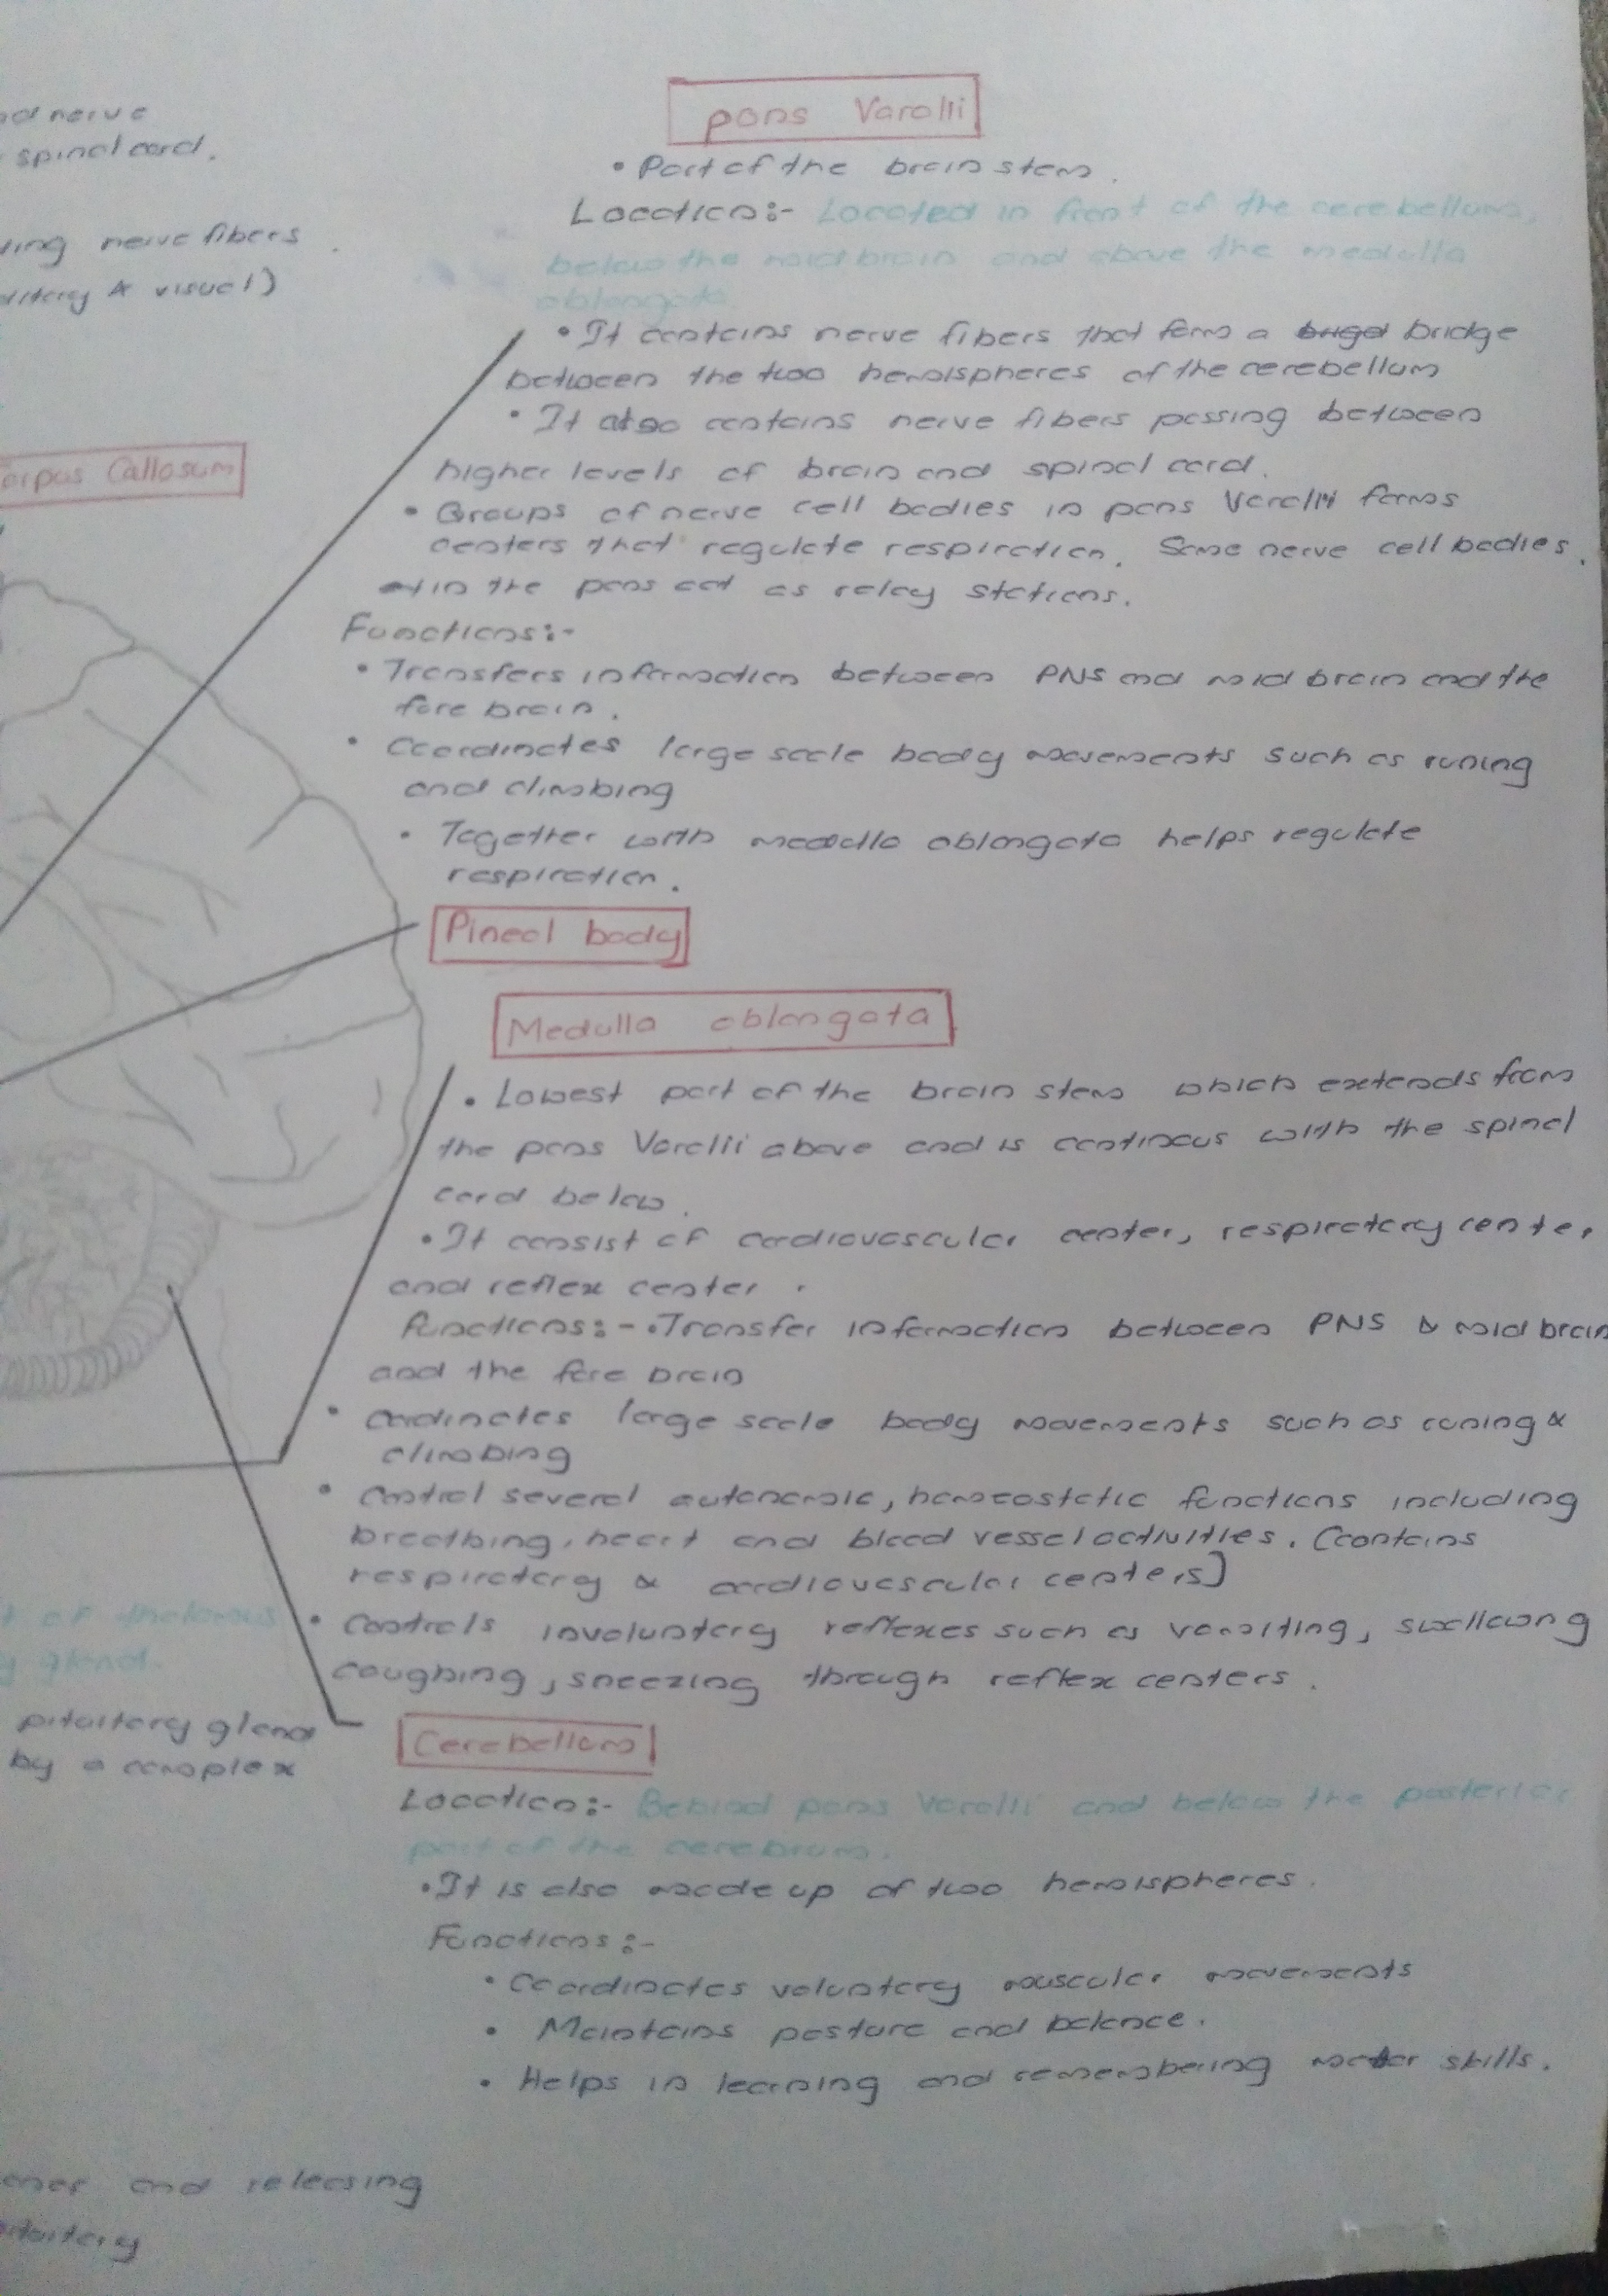 nerve
spinal cord.
nerve fibers
& visual)
Corpus Callosum
pons Varolli
• Part of the brain stem.
Location:- Located in front of the cerebellum,
below the midbrain and above the medulla
oblongata
• It contains nerve fibers that form a bridge
between the two hemispheres of the cerebellum
• It also contains nerve fibers passing between
higher levels of brain and spinal cord.
• Groups of nerve cell bodies in pons Varolli forms
centers that regulate respiration. Some nerve cell bodies
in the pons act as relay stations.
Functions:-
• Transfers information between PNS and mid brain and the
fore brain.
• Coordinates large scale body movements such as runing
and climbing
• Together with medulla oblongata helps regulate
respiration.
Pineal body
Medulla oblongata
• Lowest part of the brain stem which extends from
the pons Varolii above and is continous with the spinal
cord below.
• It consist of cardiovascular center, respiratory center
and reflex center.
Functions:- • Transfer information between PNS & mid brain
and the fore brain
• cordinates large scale body movements such as runing &
climbing
• Control several autonomic, homeostatic functions including
breathing, heart and blood vessel activities. (contains
respiratory & cardiovascular centers]
• Controls involuntary reflexes such as vomiting, swallowng
coughing, sneezing through reflex centers.
of thalamus
gland.
pituitary gland
by a complex
Cerebellum
Location:- Behind pons Varolli and below the posterior
part of the cerebrum.
• It is also made up of two hemispheres.
Functions:-
• Coordinates voluntary muscular movements
• Maintains posture and balance.
• Helps in learning and remembering motor skills.
and releasing